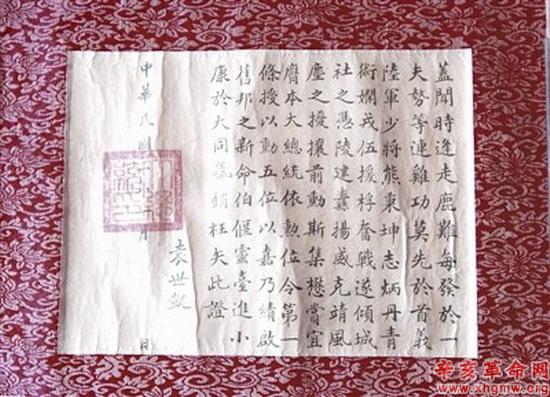 蓋聞時逢走鹿難每發於一
夫勢等連雞功莫先於首義
陸軍少將熊秉坤志炳丹青
術嫻戎伍援桴奮戰遂傾城
社之憑陵建纛揚威克靖風
塵之擾攘前勳斯集懋賞宜
膺本大總統依勳位令第一
條授以勳五位以嘉乃績啟
舊邦之新命伯偃靈臺進小
康於大同氛銷枉矢此證
袁世凱
中華民國 月 日
辛亥革命网
www.xhgmw.org